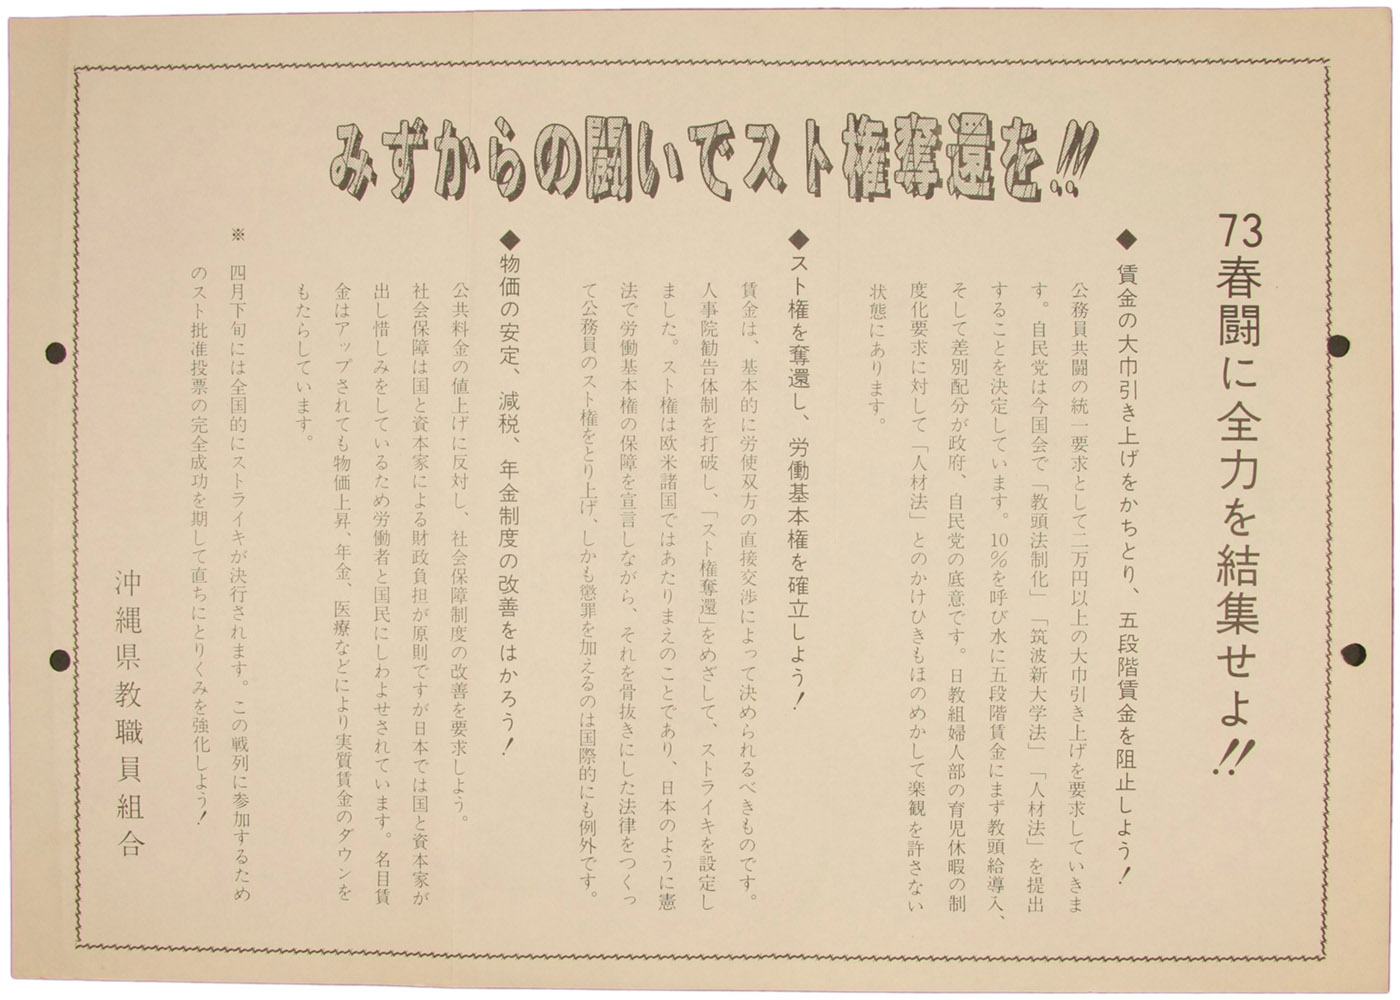 みずからの闘いでスト権奪還を!!
73春闘に全力を結集せよ!!
◆ 賃金の大巾引き上げをかちとり、五段階賃金を阻止しよう!
公務員共闘の統一要求として二万円以上の大巾引き上げを要求していきま
す。自民党は今国会で「教頭法制化」「筑波新大学法」「人材法」を提出
することを決定しています。10%を呼び水に五段階賃金にまず教頭給導入、
そして差別配分が政府、自民党の底意です。日教組婦人部の育児休暇の制
度化要求に対して「人材法」とのかけひきもほのめかして楽観を許さない
状態にあります。
◆ スト権を奪還し、労働基本権を確立しよう!
賃金は、基本的に労使双方の直接交渉によって決められるべきものです。
人事院勧告体制を打破し、「スト権奪還」をめざして、ストライキを設定し
ました。スト権は欧米諸国ではあたりまえのことであり、日本のように憲
法で労働基本権の保障を宣言しながら、それを骨抜きにした法律をつくっ
て公務員のスト権をとり上げ、しかも懲罪を加えるのは国際的にも例外です。
◆ 物価の安定、減税、年金制度の改善をはかろう!
公共料金の値上げに反対し、社会保障制度の改善を要求しよう。
社会保障は国と資本家による財政負担が原則ですが日本では国と資本家が
出し惜しみをしているため労働者と国民にしわよせされています。名目賃
金はアップされても物価上昇、年金、医療などにより実質賃金のダウンを
もたらしています。
※ 四月下旬には全国的にストライキが決行されます。この戦列に参加するため
のスト批准投票の完全成功を期して直ちにとりくみを強化しよう!
沖縄県教職員組合